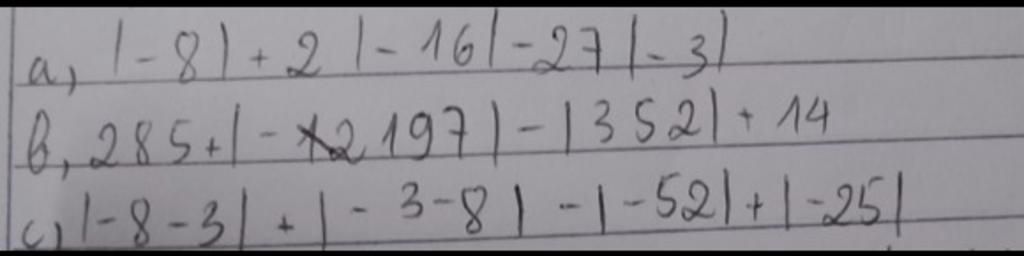 a, |-8| + 2 |-16| - 27 |-3|
b, 285 + |-2197| - |352| + 14
c, |-8-3| + |-3-8| - |-52| + |-25|